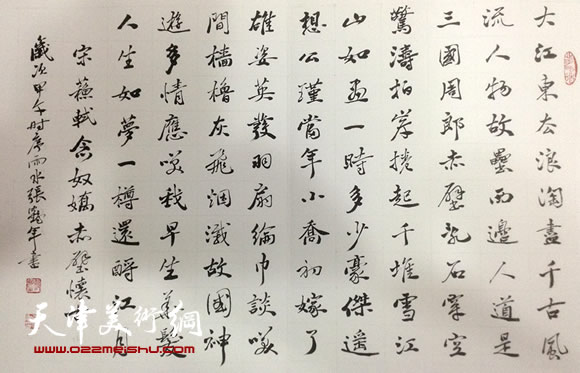 大江東去浪淘盡千古風
流人物故壘西邊人道是
三國周郎赤壁亂石穿空
驚濤拍岸捲起千堆雪江
山如畫一時多少豪傑遙
想公瑾當年小喬初嫁了
雄姿英發羽扇綸巾談笑
間檣櫓灰飛烟滅故國神
遊多情應笑我早生華髮
人生如夢一樽還酹江月
宋蘇軾念奴嬌赤壁懷古
歲次甲午时序雨水張年書
天津美術網
www.022meishu.com